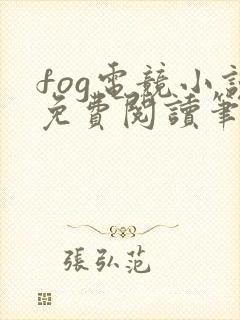 fog電競小說
免費閱讀筆
張弘范